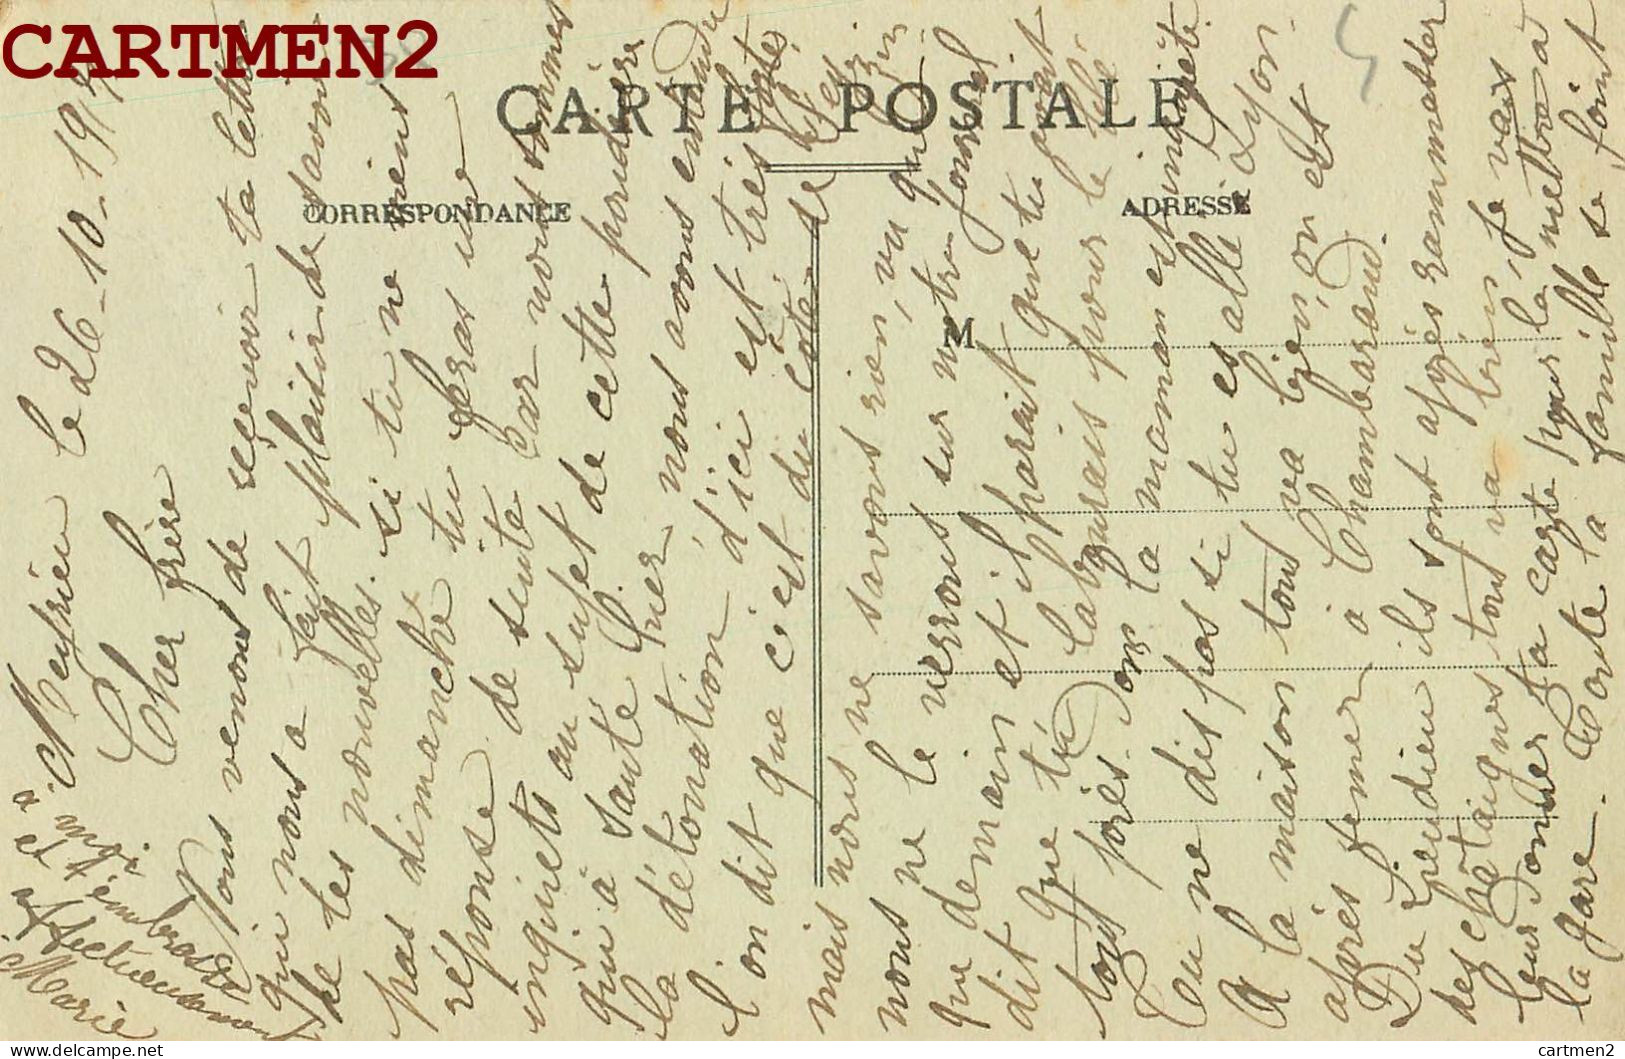 CARTMEN2
CARTE POSTALE
CORRESPONDANCE
ADRESSE
M
le 26-10-19
Cher frère
Nous venons de reçevoir ta lettre
qui nous a fait plaisir de savoir
de tes nouvelles. si tu ne viens
pas dimanche tu feras une
réponse de suite car nous sommes
inquiets au sujet de cette poudrière
qui à sauté hier nous avons entendu
la détonation d'ici est très forte
l'on dit que c'est du côté de
mais nous ne savons rien, vu que
nous ne le verrons sur notre journal
que demain et il parait que tu avait
dit que té labourais pour le blé
tout près. donc la maman est inquiète
tu ne dis pas si tu es allé a Lyon.
A la maison tous va bien, on est
après femer à Chambaraud.
Du Lieudieu ils sont après rammasser
des chataignes tout va bien, je vais
leur donner ta carte pour la mettre a
la gare. Toute la famille se joint
à moi
et t'embrasse
affectueusement
Marie
cartmen2